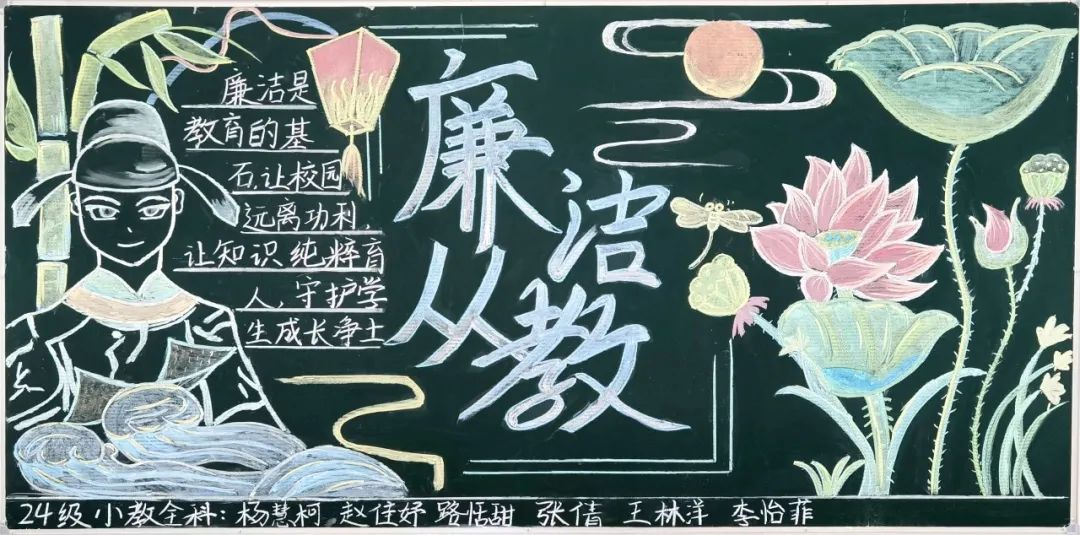 廉洁是
教育的基
石,让校园
远离功利,
让知识纯粹育
人,守护学
生成长净土
廉洁
从教
24级小教全科:杨慧柯 赵佳妤 路恬甜 张倩 王林洋 李怡菲